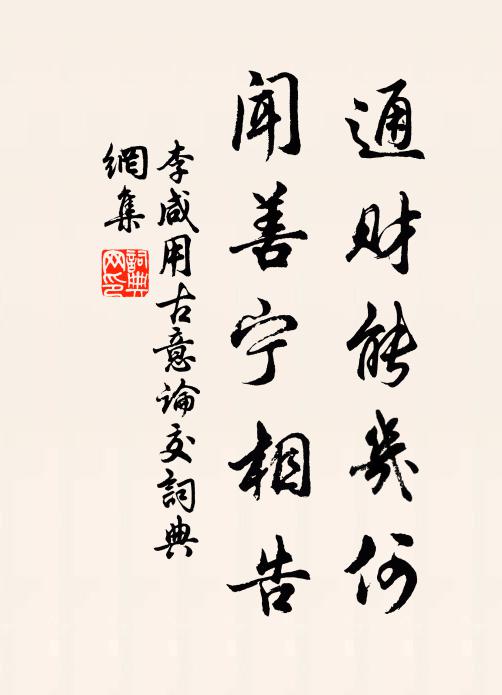 通财能几何
闻善宁相告
李咸用古意論交詞典
網集
詞典
网印